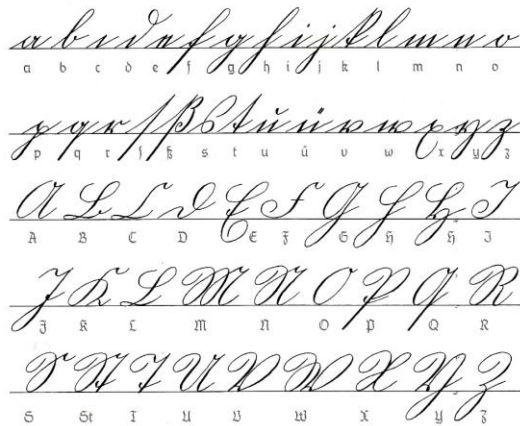 a b c d e f g h i j k l m n o
a b c d e f g h i j k l m n o
p q r ſ ß s t ŭ ü v w x y z
p q r ſ ß s t u ü v w x y z
A B C D E F G H H I
A B C D E F G H H I
J K L M N O P Q R
J K L M N O P Q R
S St T U V W X Y Z
S St T U V W X Y Z